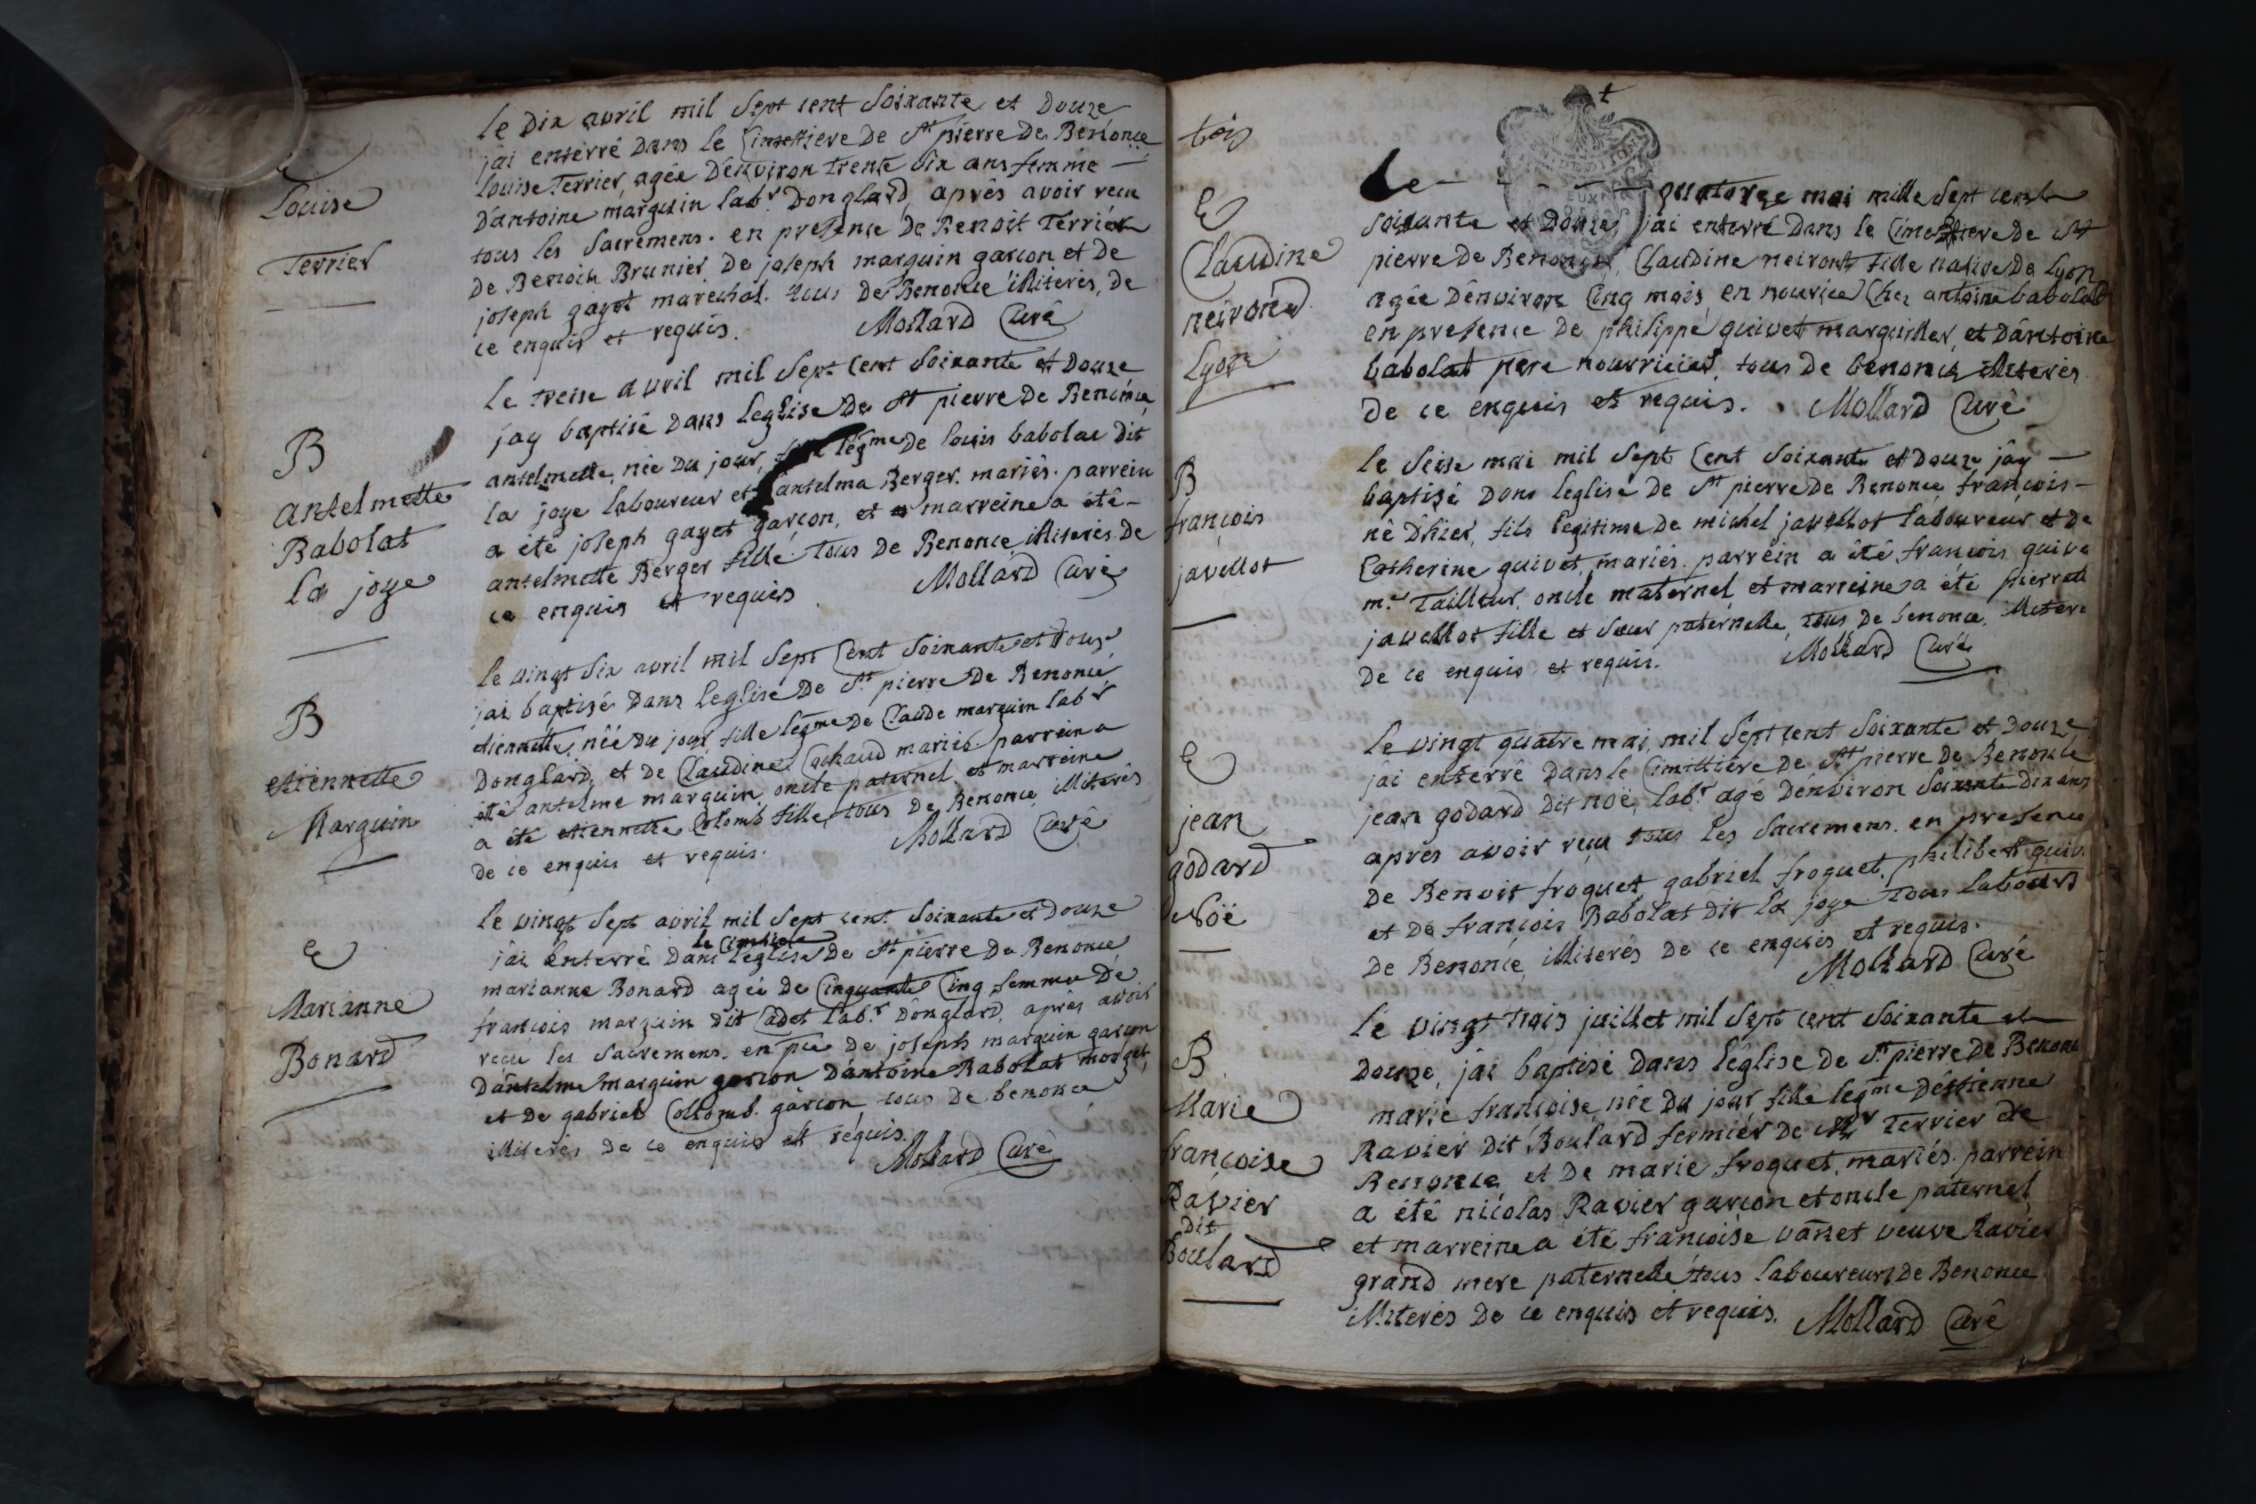 E
Louise
Terrier
le Dix avril mil Sept cent Soixante et Douze
j'ai enterré dans le Cimettiere De St pierre De Benonce
Louise Terrier, agée D'environ trente six ans femme
D'antoine marguin labr Donglard, après avoir recu
tous les Sacremens. en presence De Benoit Terrier
De Benoit Brunier, De joseph marguin garcon et de
joseph gayet marechal. tous De Benonce illiterés, de
ce enquis et requis. Mollard Curé
B
antelmette
Babolat
la joye
Le treise avril mil Sept Cent Soixante et Douze
jay baptisé Dans leglise De St pierre De Benonce
antelmette, née Du jour, fille légme De louis babolat Dit
la joye laboureur et antelma Berger. mariés. parrein
a été joseph gayet garçon, et marreine a été
antelmette Berger fille. tous De Benonce illiterés De
ce enquis et requis. Mollard Curé
B
etiennette
Marguin
le vingt six avril mil Sept Cent Soixante et Douze
jai baptisé Dans leglise De St pierre De Benonce
etiennette, née Du jour, fille legme De Claude marguin labr
Donglard, et de Claudine Cochaud mariés. parrein a
été antelme marguin oncle paternel, et marreine
a été etiennette Colomb fille, tous De Benonce illiterés
De ce enquis et requis. Mollard Curé
E
Marianne
Bonard
le vingt Sept avril mil Sept cent Soixante et Douze
le Cimetiere
j'ai enterré Dans l'eglise De St pierre De Benonce
marianne Bonard agée de Cinquante Cinq femme De
françois marguin Dit Cadet labr Donglard, après avoir
reçu les Sacremens. en pce de joseph marguin garçon
D'antelme marguin garcon D'antoine Babolat morget,
et De gabriel Collomb. garçon, tous De benonce
illiterés De ce enquis et requis.
Mollard Curé
E
Claudine
neirond
Lyon
Le quatorze mai mille Sept cent
soixante et Douze, jai enterré Dans le Cimettiere de St
pierre De Benonce, Claudine neirond fille native De Lyon
agée D'environ Cinq mois, en nourrice Chez antoine babolat
en presence De philippe guivet marguiller, et D'antoine
babolat pere nourricier, tous De benonce illiterés
De ce enquis et requis. Mollard Curé
B
françois
javellot
le Seise mai mil Sept Cent Soixante et Douze jay
baptisé Dans leglise de St pierre De Benonce françois
né D'hier, fils legitime De michel javellot laboureur et De
Catherine guivet, mariés. parrein a été françois guive
me Tailleur, oncle maternel et marreine a été pierrette
javellot fille et Sœur paternelle, tous De benonce, illitere
De ce enquis et requis. Mollard Curé
E
jean
godard
Noë
le vingt quatre mai, mil Sept cent Soixante et Douze
j'ai enterré Dans le Cimittiére De St pierre De Benonce
jean godard Dit noë, labr agé D'environ Soixante Dix ans
après avoir reçu tous les Sacremens. en presence
De Benoit froquet, gabriel froquet, philibert guiv
et De françois Babolat Dit la joye tous labours
De Benonce, illiterés de ce enquis et requis.
Mollard Curé
B
Marie
françoise
Ravier
dit
Boulard
le vingt trois juillet mil Sept cent Soixante et
Douze, jai baptisé Dans l'église De St pierre De Benonc
marie françoise, née Du jour, fille legme D'étienne
Ravier Dit Boulard fermier De Mr Terrier De
Benonce et De marie froquet, mariés. parrein
a été nicolas Ravier garcon et oncle paternel
et marreine a été françoise vanet veuve Ravier
grand mere paternelle, tous laboureurs De Benonce
illiterés De ce enquis et requis. Mollard Curé